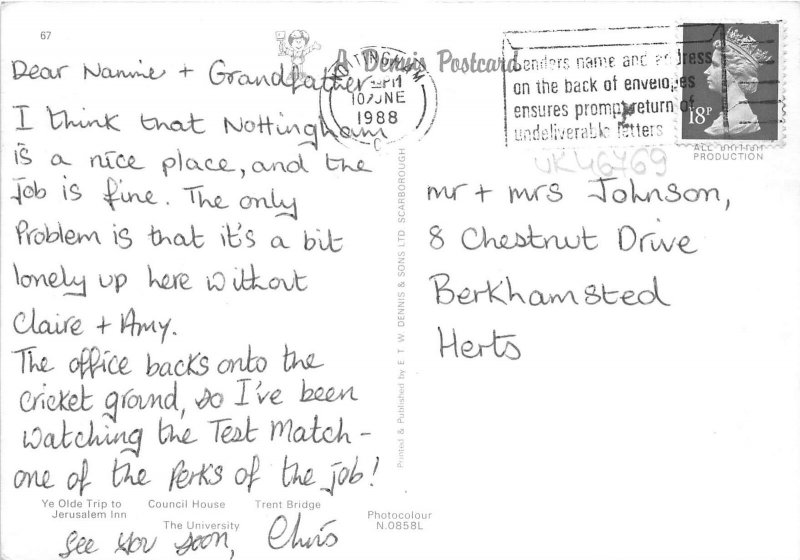 67
A Dennis Postcard
Dear Nannie + Grandfather
I think that Nottingham
is a nice place, and the
job is fine. The only
Problem is that it's a bit
lonely up here without
Claire + Amy.
The office backs onto the
cricket ground, so I've been
watching the Test Match -
one of the Perks of the job!
See you soon, Chris
Ye Olde Trip to
Jerusalem Inn
Council House
Trent Bridge
The University
Photocolour
N.0858L
Printed & Published by E T W DENNIS & SONS LTD SCARBOROUGH
NOTTINGHAM
PM
10 JUNE
1988
C
Senders name and address
on the back of envelopes
ensures prompt return of
undeliverable letters
18P
ALL BRITISH
PRODUCTION
UK46769
mr + mrs Johnson,
8 Chestnut Drive
Berkhamsted
Herts